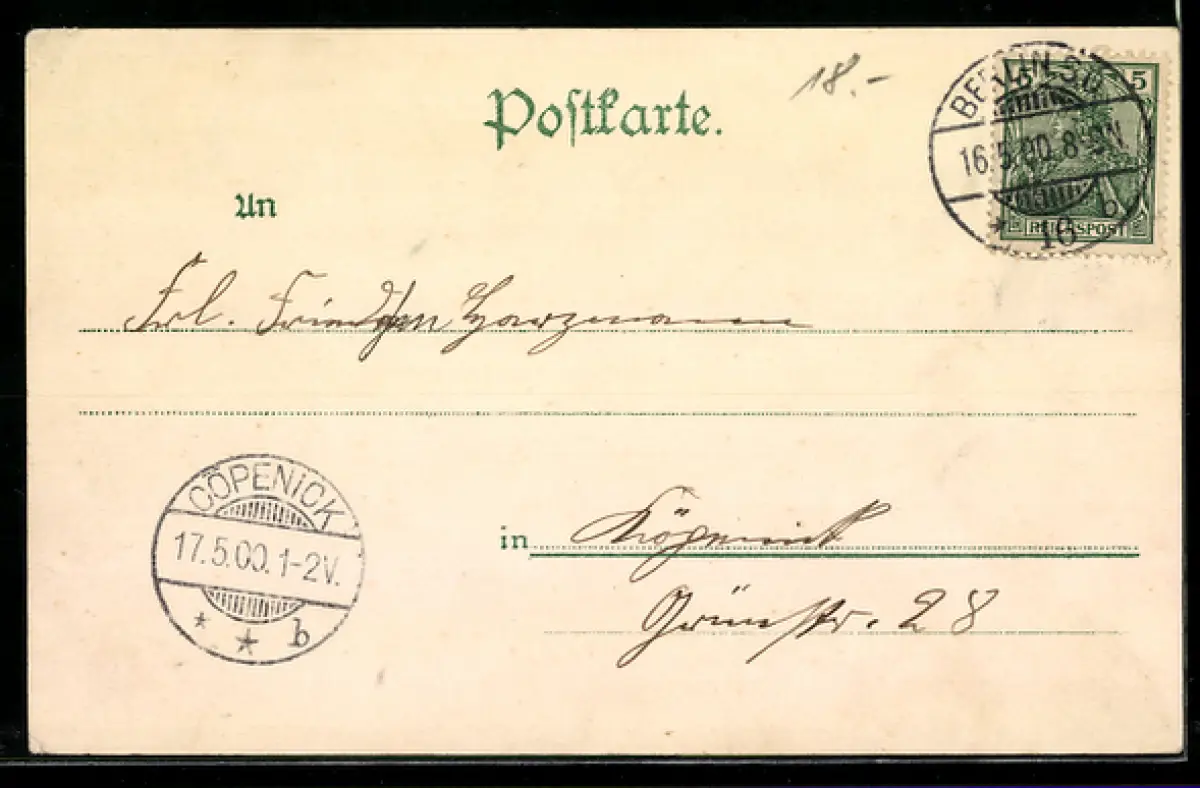 18.-
Postkarte.
BERLIN S.O.
16.5.00. 8-9N.
* 16 b
5
REICHSPOST
An
Frl.
in Köpenick
Grünstr. 28
CÖPENICK
17.5.00. 1-2V.
* * b